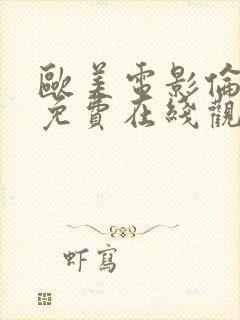 歐美電影倫
免費在綫觀
虾寫